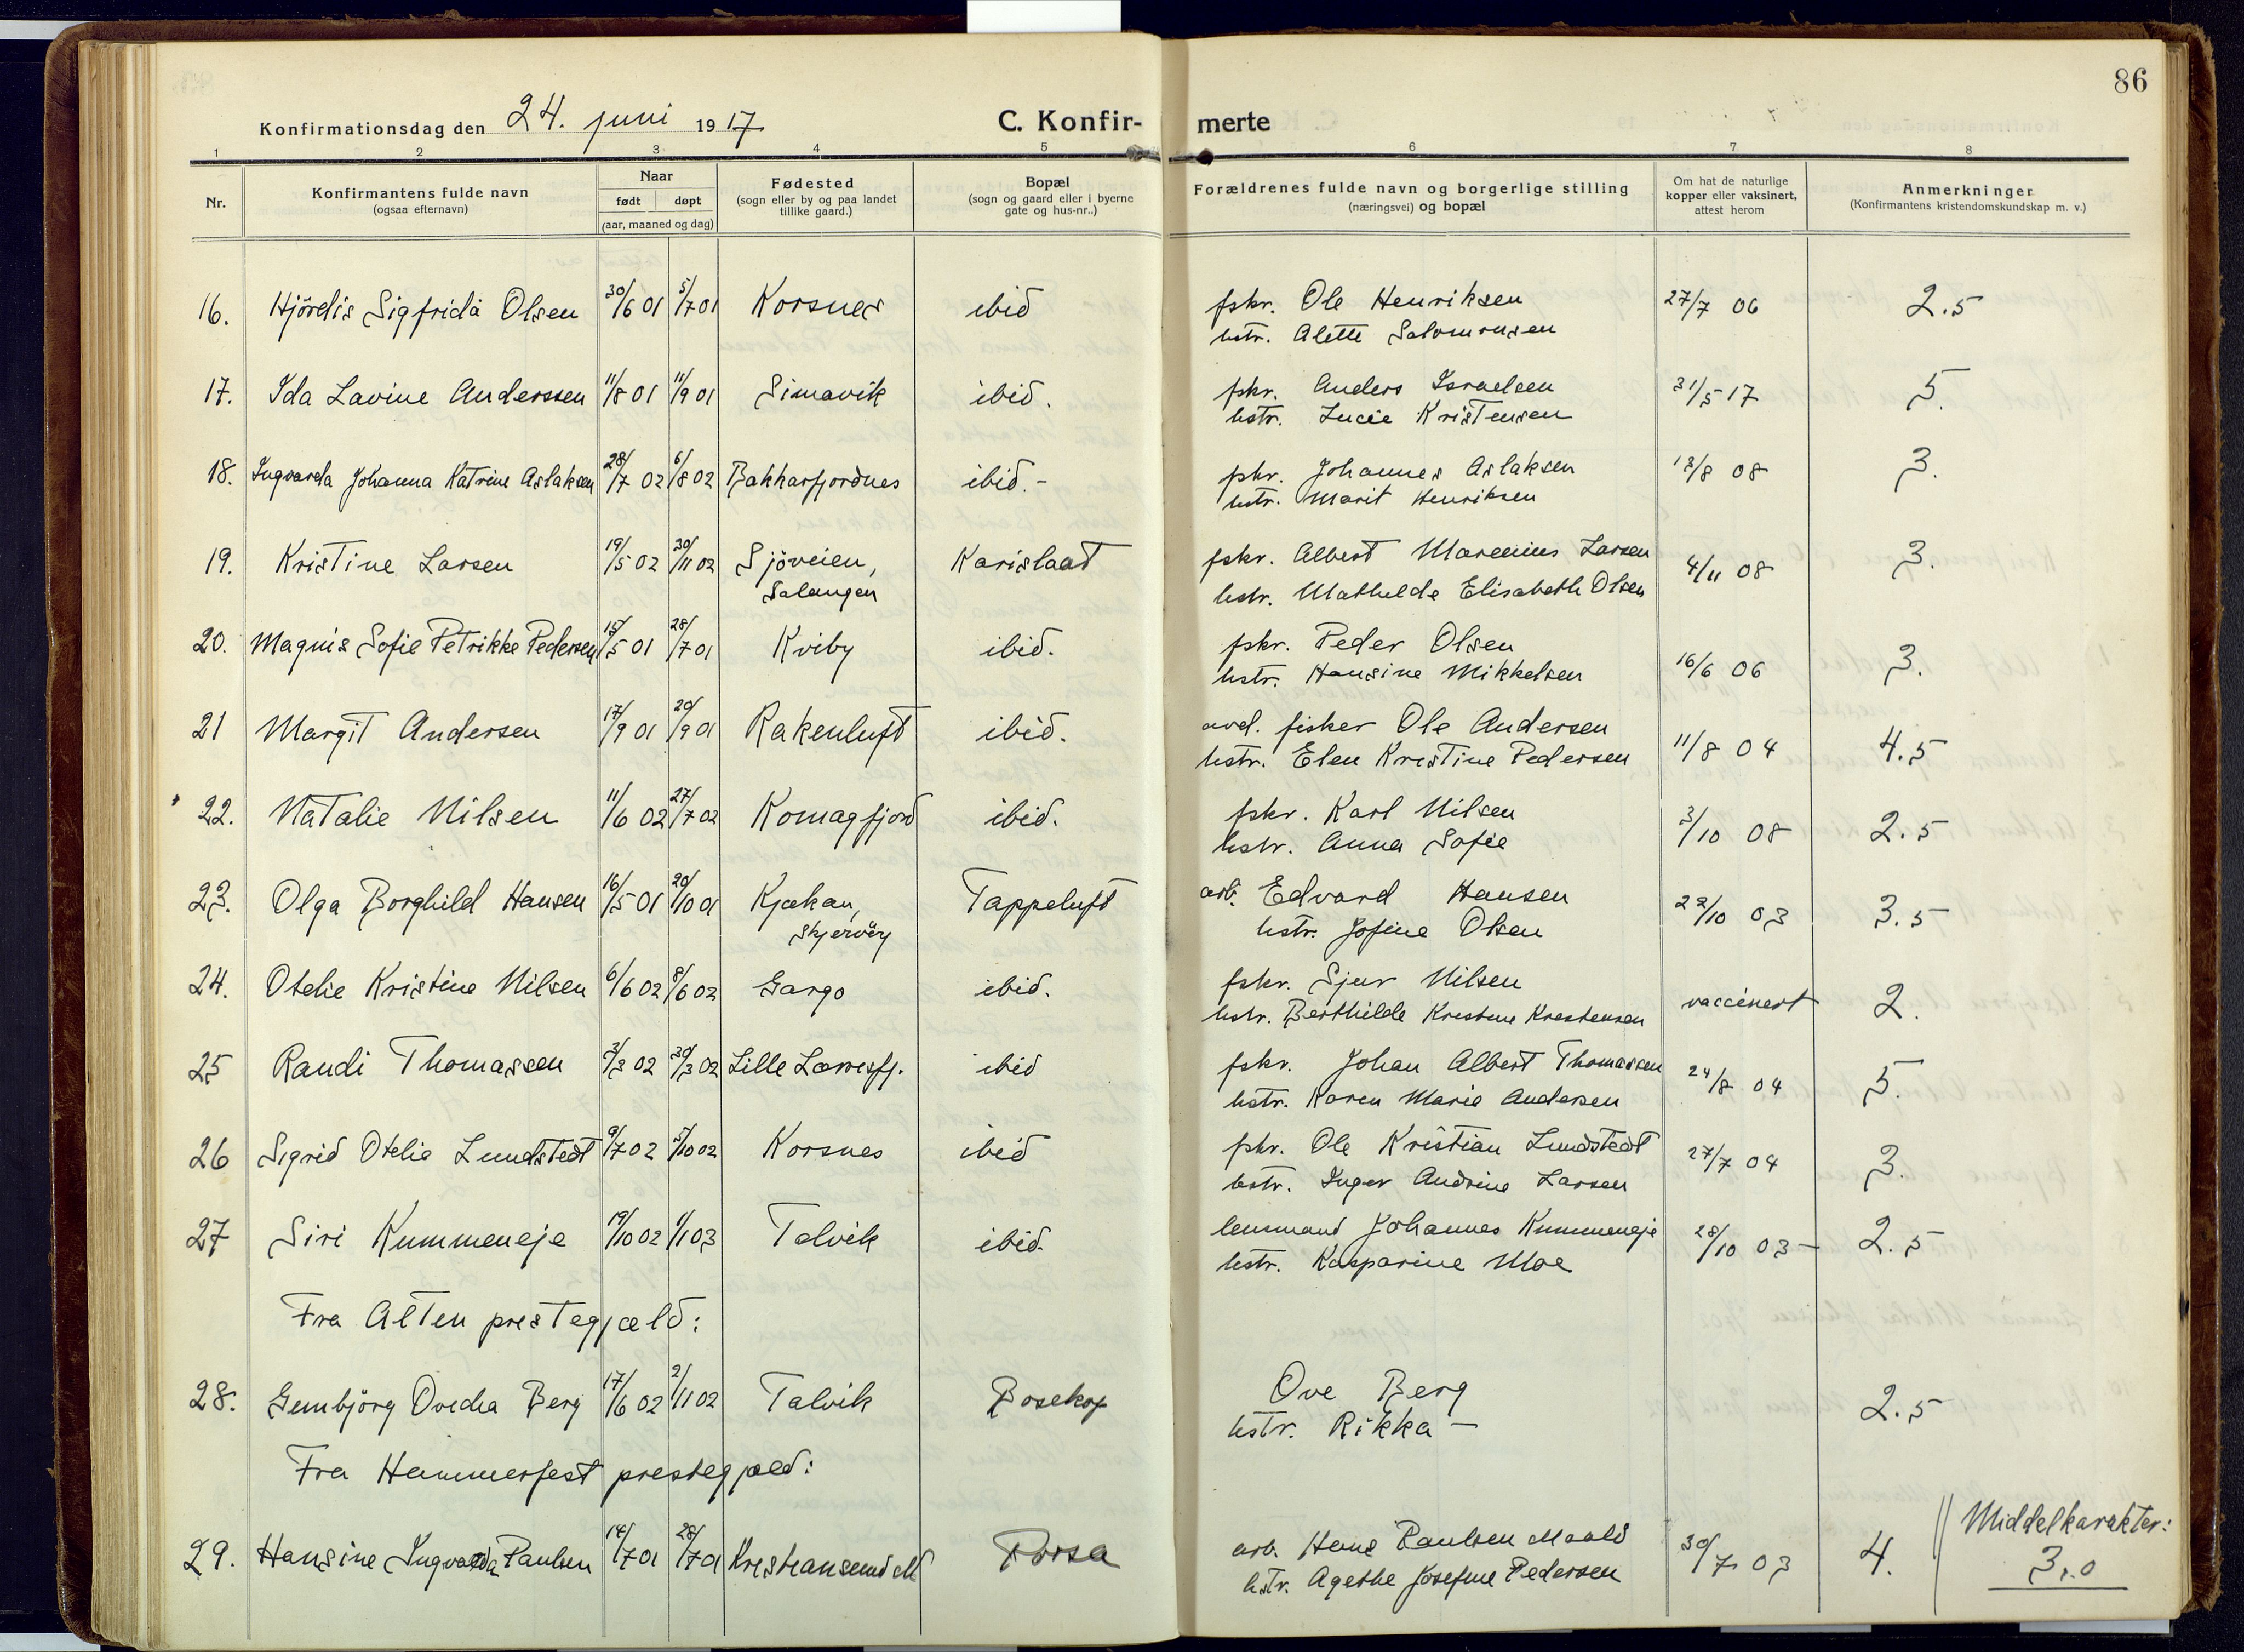 86
Konfirmationsdag den 24. juni 1917
C. Konfirmerte
1 2 3 4 5 6 7 8
Nr.
Konfirmantens fulde navn
(ogsaa efternavn)
Naar
født døpt
(aar, maaned og dag)
Fødested
(sogn eller by og paa landet
tillike gaard.)
Bopæl
(sogn og gaard eller i byerne
gate og hus-nr..)
Forældrenes fulde navn og borgerlige stilling
(næringsvei) og bopæl
Om hat de naturlige
kopper eller vaksinert,
attest herom
Anmerkninger
(Konfirmantens kristendomskundskap m. v.)
16. Hjördis Sigfrida Olsen 30/6 01 5/7 01 Korsnes ibid fskr. Ole Henriksen 27/7 06 2.5
hstr. Alette Salomonsen
17. Ida Lavine Anderssen 11/8 01 11/9 01 Simavik ibid. fskr. Anders Israelsen 31/5 17 5.
hstr. Lucie Kristensen
18. Ingvarda Johanna Katrine Aslaksen 28/7 02 6/8 02 Bakharfjordnes ibid.- fskr. Johannes Aslaksen 12/8 08 3.
hstr. Marit Henriksen
19. Kristine Larsen 19/5 02 30/11 02 Sjöveien, Karislaat fskr. Albert Marenius Larsen 4/11 08 3.
Salangen hstr. Mathilde Elisabeth Olsen
20. Magnis Sofie Petrikke Pedersen 15/5 01 28/7 01 Kviby ibid. fskr. Peder Olsen 16/6 06 3.
hstr. Hansine Mikkelsen
21 Margit Andersen 17/9 01 29/9 01 Rakenluft ibid. avd. fisker Ole Andersen 11/8 04 4.5
hstr. Elen Kristine Pedersen
22. Natalie Nilsen 11/6 02 27/7 02 Komagfjord ibid. fskr. Karl Nilsen 3/10 08 2.5
hstr. Anna Sofie
23. Olga Borghild Hansen 16/5 01 20/10 01 Kjækan, Tappeluft arb. Edvard Hansen 22/10 03 3.5
Skjervöy hstr. Jofine Olsen
24. Otelie Kristine Nilsen 6/6 02 8/6 02 Gargo ibid. fskr. Sjur Nilsen vaccinert 2.
hstr. Berthilde Kristine Kristensen
25 Randi Thomassen 3/3 02 30/3 02 Lille Lerresfj. ibid fskr. Johan Albert Thomassen 24/8 04 5.
hstr. Karen Marie Andersen
26 Sigrid Otelie Lundstedt 9/7 02 5/10 02 Korsnes ibid fskr. Ole Kristian Lundstedt 27/7 04 3.
hstr. Inger Andrine Larsen
27 Siri Kummeneje 19/10 02 1/1 03 Talvik ibid. lensmand Johannes Kummeneje 28/10 03 - 2.5
hstr. Kasparine Moe
Fra Alten prestegjæld:
28. Gembjörg Ovedia Berg 17/6 02 2/11 02 Talvik Bosekop Ove Berg 2.5
hstr. Rikka -
Fra Hammerfest prestegjæld:
29. Hansine Ingvarda Paulsen 14/7 01 28/7 01 Kristiansund N Porsa arb. Hans Paulsen Maald 30/7 03 4. Middelkarakter:
hstr. Agethe Josefine Pedersen 3,0